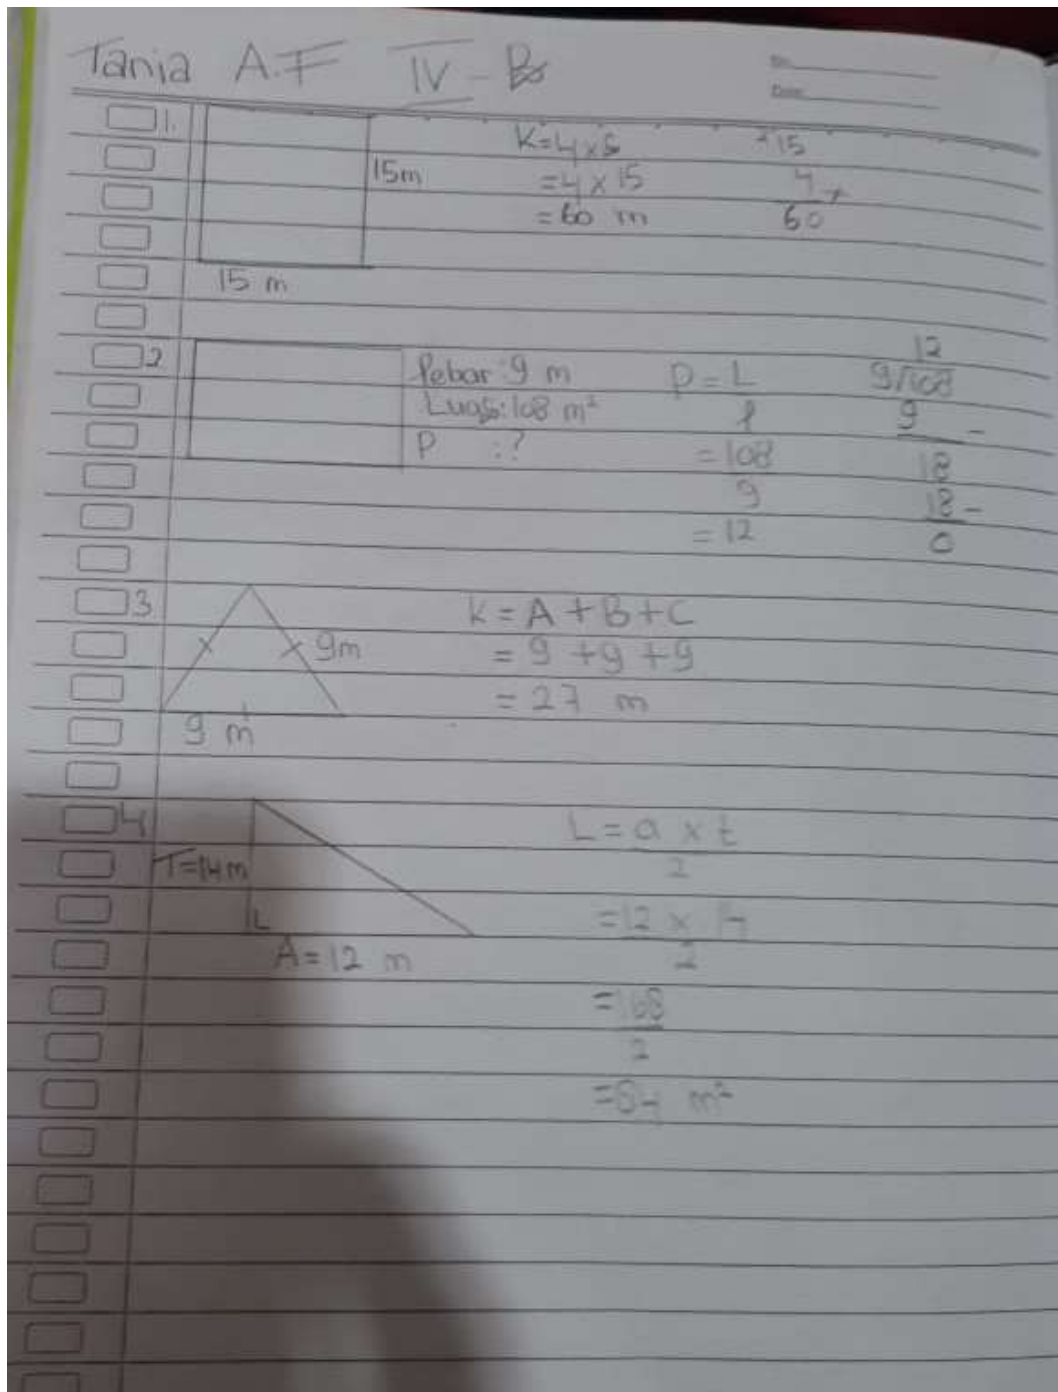 Tania A.F IV - B
No.
Date.
1.
15 m
15 m
K = 4 x s
= 4 x 15
= 60 m
²15
4 x
60
2
lebar : 9 m
Luas : 108 m²
P : ?
P = L
l
= 108
9
= 12
12
9√108
9 -
18
18 -
0
3
9 m
9 m
K = A + B + C
= 9 + 9 + 9
= 27 m
4
T = 14 m
A = 12 m
L = a x t
2
= 12 x 14
2
= 168
2
= 84 m²